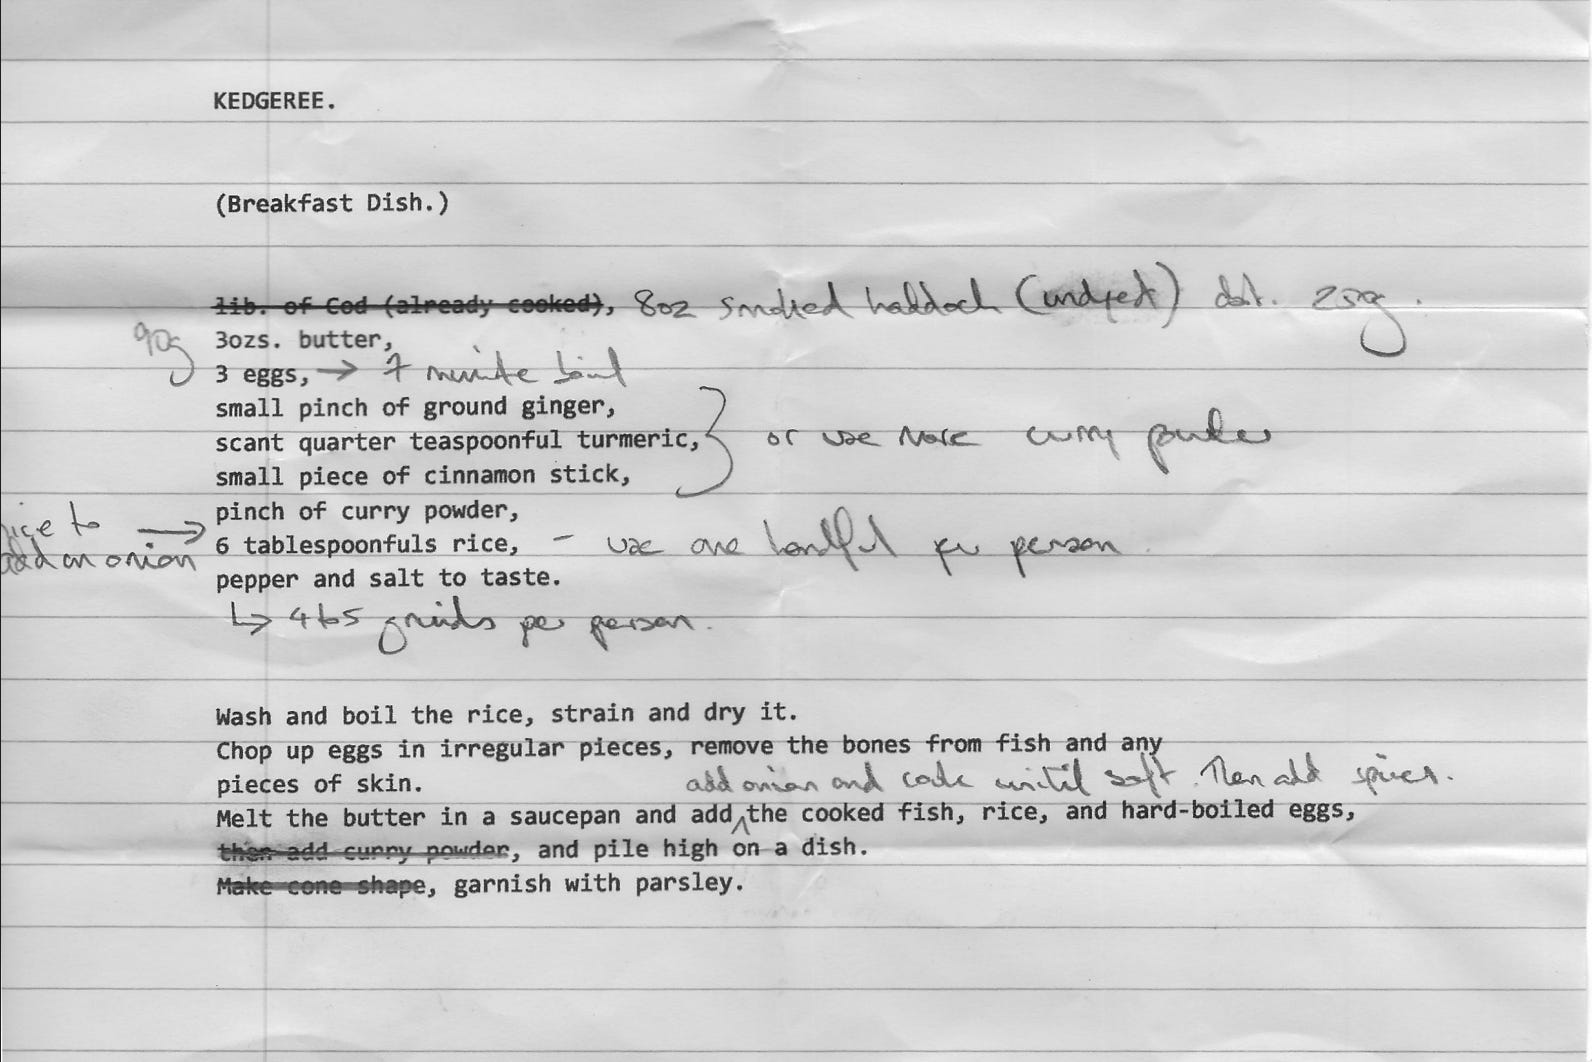 KEDGEREE.
(Breakfast Dish.)
1ib. of Cod (already cooked), 8oz smoked haddock (undyed)
90g
3ozs. butter,
3 eggs, → 7 minute boil
small pinch of ground ginger,
scant quarter teaspoonful turmeric, or use more curry powder
small piece of cinnamon stick,
pinch of curry powder,
nice to → 
add an onion
6 tablespoonfuls rice, - use one handful per person
pepper and salt to taste.
↳ 4 to 5 grinds per person.
Wash and boil the rice, strain and dry it.
Chop up eggs in irregular pieces, remove the bones from fish and any
pieces of skin. add onion and cook until soft. Then add spices.
Melt the butter in a saucepan and add ^ the cooked fish, rice, and hard-boiled eggs,
then add curry powder, and pile high on a dish.
Make cone shape, garnish with parsley.